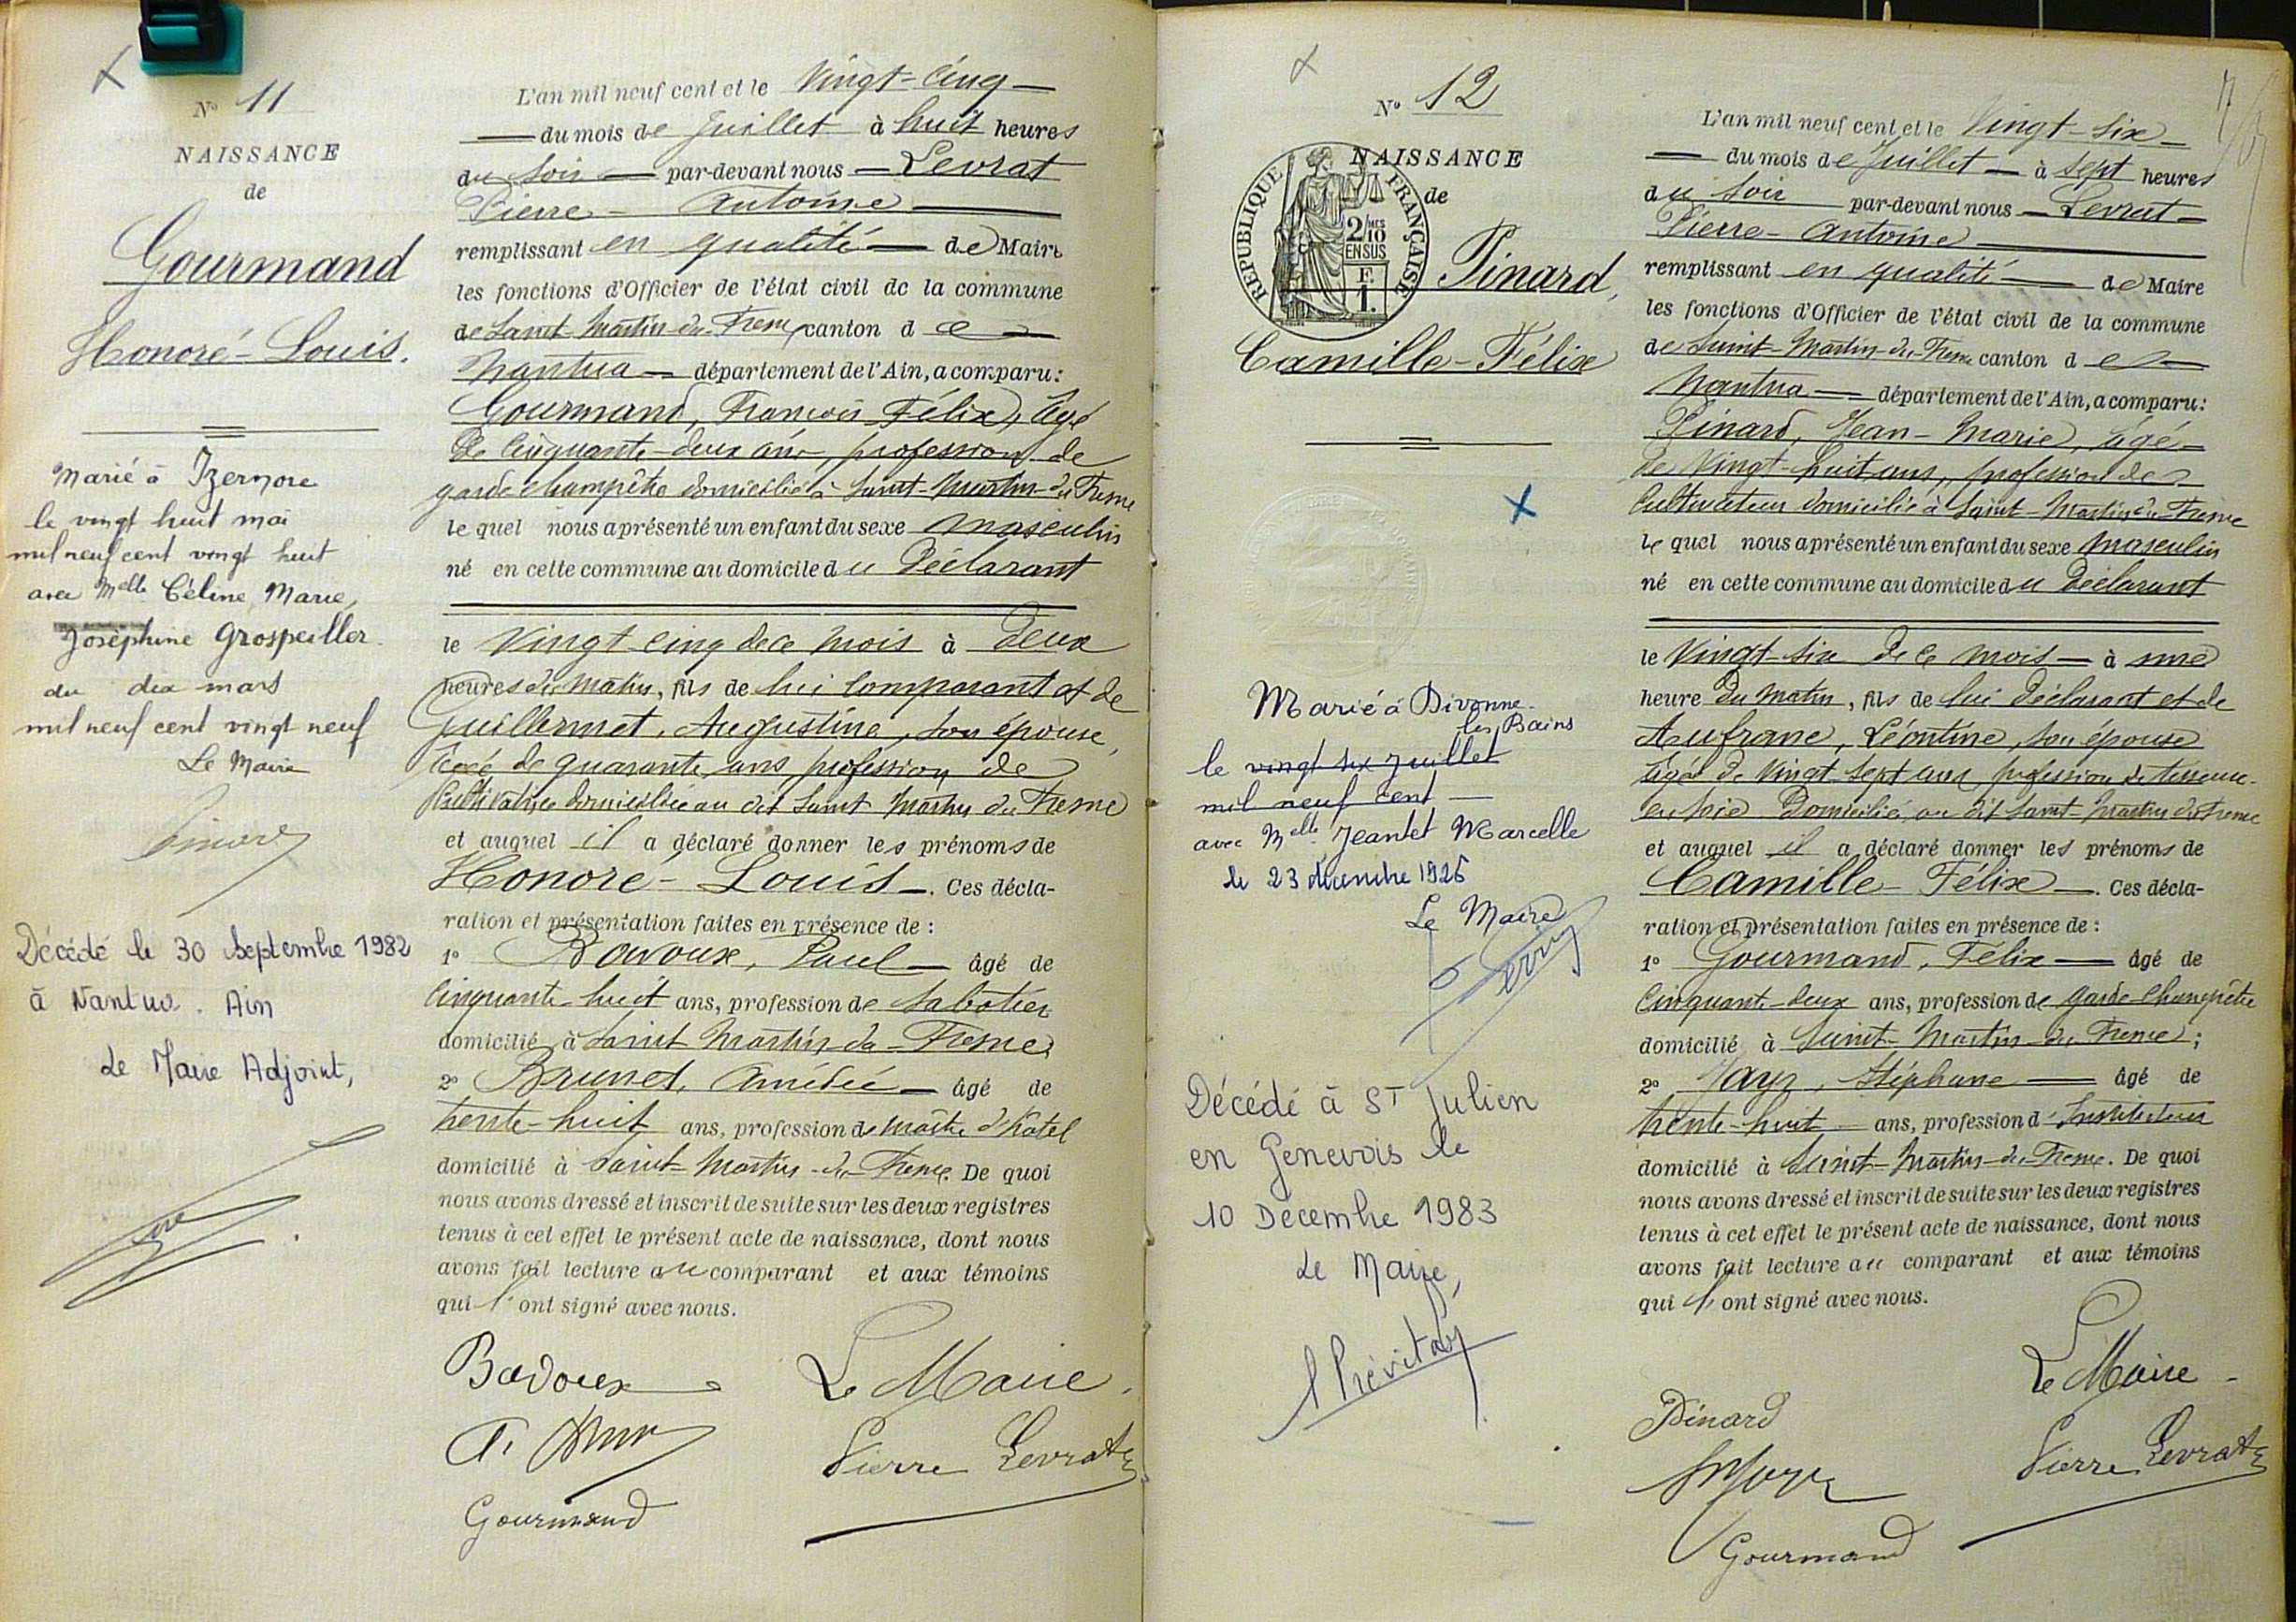 N° 11
NAISSANCE
de
Gourmand
Honoré-Louis.
Marié à Izernore
le vingt huit mai
mil neuf cent vingt huit
avec Melle Céline, Marie,
Joséphine Grospeiller
du dix mars
mil neuf cent vingt neuf
Le Maire
Décédé le 30 Septembre 1982
à Nantua. Ain
Le Maire Adjoint,
L'an mil neuf cent et le Vingt-Cinq
du mois de Juillet à huit heures
du soir par-devant nous Levrat
Pierre-Antoine
remplissant en qualité de Maire
les fonctions d'Officier de l'état civil de la commune
de Saint-Martin-du-Fresne, canton de
Nantua département de l'Ain, a comparu:
Gourmand, François Félix, âgé
de Cinquante-deux ans, profession de
garde champêtre domicilié à Saint-Martin-du-Fresne
lequel nous a présenté un enfant du sexe masculin
né en cette commune au domicile du Déclarant
le Vingt cinq de ce mois à deux
heures du matin, fils de lui comparant et de
Guillermet, Augustine, son épouse,
âgée de quarante ans, profession de
Cultivatrice domiciliée au dit Saint Martin du Fresne
et auquel il a déclaré donner les prénoms de
Honoré-Louis. Ces décla-
ration et présentation faites en présence de :
1° Bavoux, Paul âgé de
Cinquante-huit ans, profession de Sabotier
domicilié à Saint Martin-du-Fresne;
2° Brunet, Amédée âgé de
trente-huit ans, profession de maître d'hôtel
domicilié à Saint-Martin-du-Fresne. De quoi
nous avons dressé et inscrit de suite sur les deux registres
tenus à cet effet le présent acte de naissance, dont nous
avons fait lecture au comparant et aux témoins
qui l'ont signé avec nous.
Bavoux
Le Maire.
Pierre Levrat
Gourmand
N° 12
NAISSANCE
de
RÉPUBLIQUE FRANÇAISE
2/10 MES
EN SUS
F
1.
Pinard,
Camille-Félix
Marié à Divonne-
les Bains
le vingt six juillet
mil neuf cent
avec Melle Jeantet Marcelle
le 23 décembre 1926
Le Maire
Décédé à St Julien
en Genevois le
10 Décembre 1983
Le Maire,
L'an mil neuf cent et le Vingt-six
du mois de Juillet à sept heures
du soir par-devant nous Levrat
Pierre-Antoine
remplissant en qualité de Maire
les fonctions d'Officier de l'état civil de la commune
de Saint-Martin-du-Fresne canton de
Nantua département de l'Ain, a comparu:
Pinard, Jean-Marie, âgé
de Vingt-huit ans, profession de
Cultivateur domicilié à Saint-Martin-du-Fresne
lequel nous a présenté un enfant du sexe masculin
né en cette commune au domicile du Déclarant
le Vingt-six de ce mois à une
heure du matin, fils de lui déclarant et de
Aufranc, Léontine, son épouse
âgée de Vingt-sept ans, profession de tisseuse
en soie Domiciliée au dit Saint-Martin-du-Fresne
et auquel il a déclaré donner les prénoms de
Camille Félix. Ces décla-
ration et présentation faites en présence de :
1° Gourmand, Félix âgé de
Cinquante-deux ans, profession de garde-champêtre
domicilié à Saint-Martin-du-Fresne;
2° Jayr, Stéphane âgé de
trente-huit ans, profession d'Instituteur
domicilié à Saint-Martin-du-Fresne. De quoi
nous avons dressé et inscrit de suite sur les deux registres
tenus à cet effet le présent acte de naissance, dont nous
avons fait lecture au comparant et aux témoins
qui l'ont signé avec nous.
Le Maire
Pinard
Pierre Levrat
Gourmand